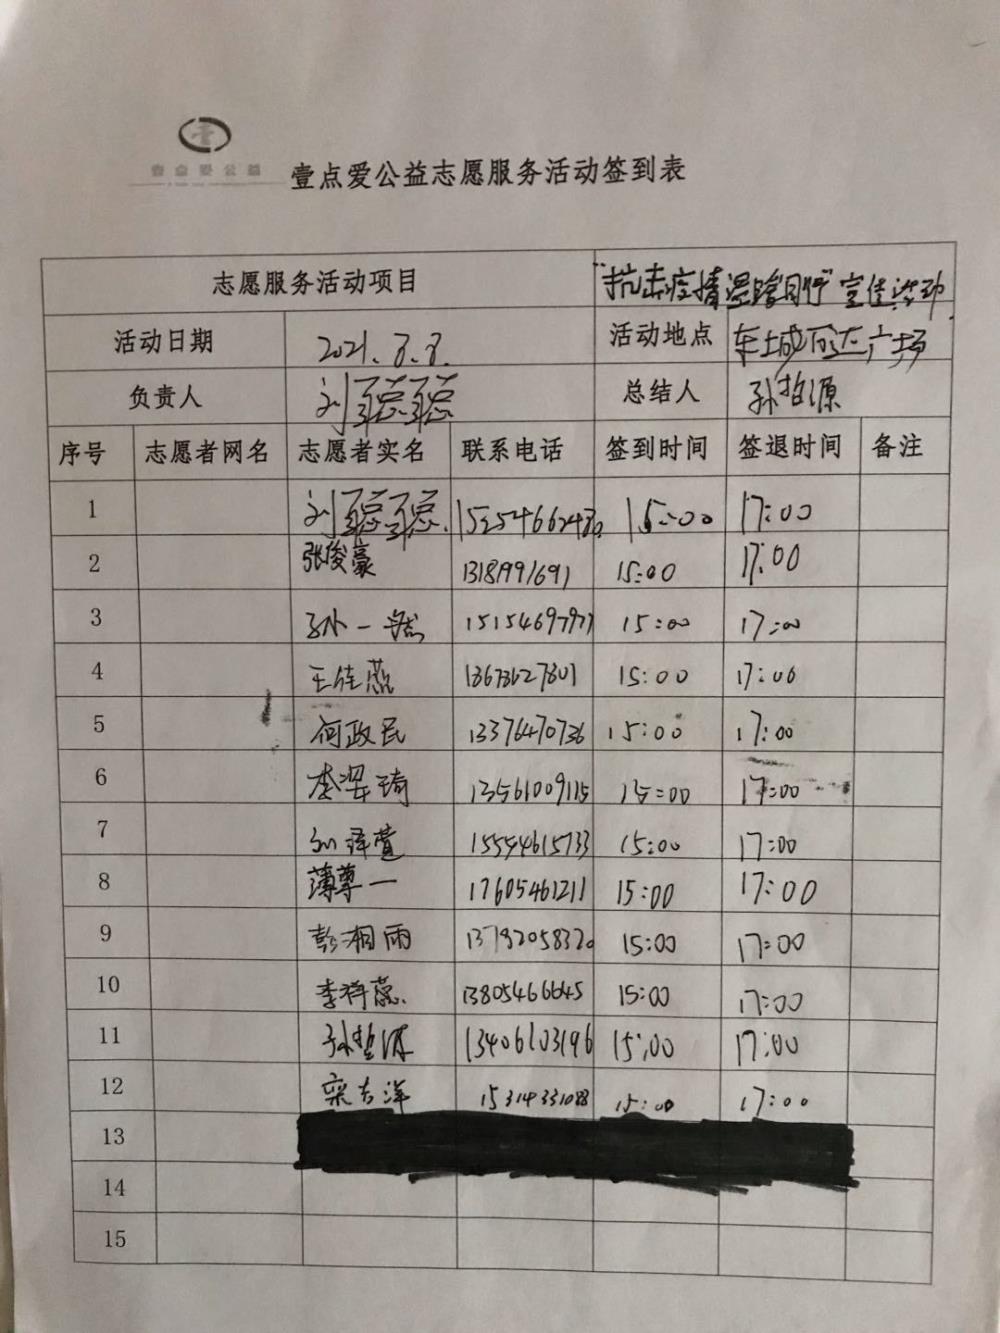 壹点爱公益
壹点爱公益志愿服务活动签到表
志愿服务活动项目 "抗击疫情 温暖同行" 宣传活动
活动日期 2021.8.8. 活动地点 东城万达广场
负责人 刘聪聪 总结人 孙哲源
序号 志愿者网名 志愿者实名 联系电话 签到时间 签退时间 备注
1 刘聪聪 15:00 17:00
2 张俊豪 13181991691 15:00 17:00
3 孙一 15:00 17:00
4 王佳 15:00 17:00
5 何政民 13376470736 15:00 17:00
6 李 琦 13561009115 15:00 17:00
7 泽萱 15554615733 15:00 17:00
8 薄尊一 17605461211 15:00 17:00
9 彭湘雨 13792058320 15:00 17:00
10 李祥蕊 13805466645 15:00 17:00
11 孙哲源 13406103196 15:00 17:00
12 栾志洋 15314331088 15:00 17:00
13
14
15